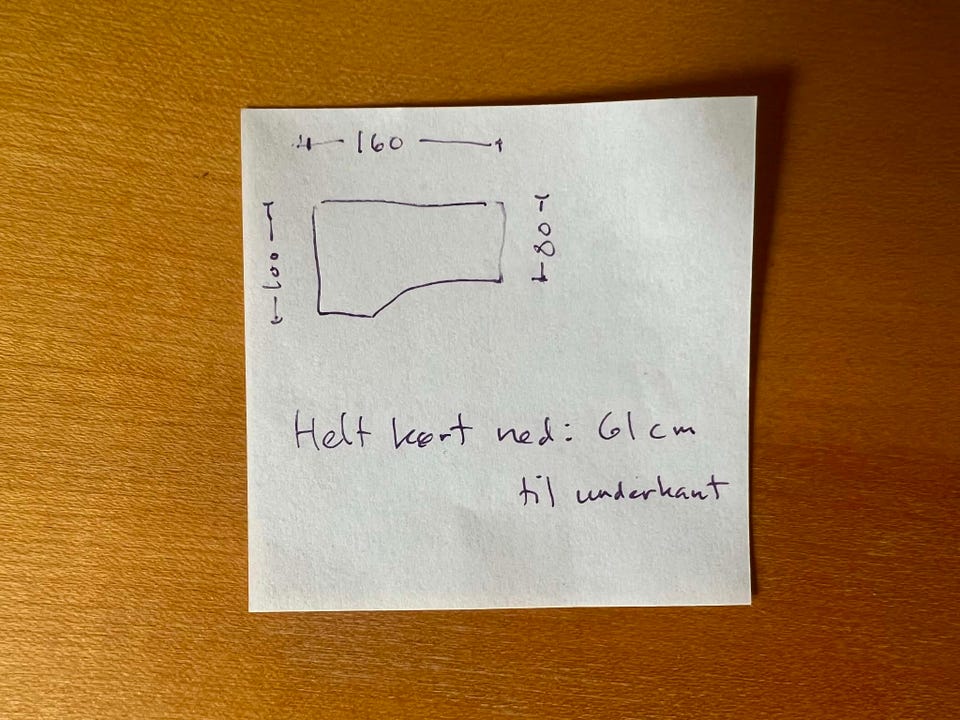 160
100
80
Helt kørt ned: 61 cm
til underkant